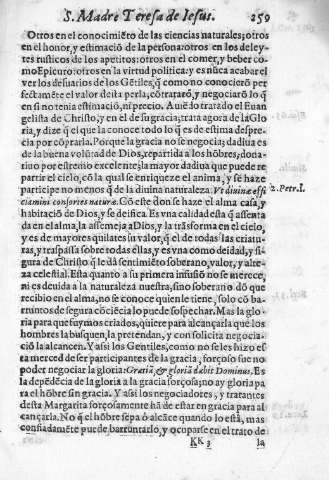 S. Madre Teresa de Iesus. 259
Otros en el conocimiẽto de las ciencias naturales; otros
en el honor, y estimació de la persona: otros en los deley-
tes rusticos de los apetitos: otros en el comer, y beber co-
mo Epicuro: otros en la virtud politica: y es nũca acabar el
ver los desuarios de los Gẽtiles, q̃ como no conociero per
fectamẽte el valor desta perla, cõtrataró, y negociaró lo q̃
en si no tenia estimació, ni precio. A uiẽdo tratado el Euan
gelista de Christo, y en el de su gracia; trata agora de la Glo
ria, y dize q̃ el que la conoce todo lo q̃ es de estima despre-
cia por cõprarla. Porque la gracia no se negocia; dadiua es
de la buena volũtad de Dios, repartida a los hõbres, dona-
tiuo por estremio excelente; la mayor dadiua que puede re-
partir el cielo, cõ la qual se enriqueze el anima, y se haze
participe no menos q̃ de la diuina naturaleza. Vt diuinæ effi 2. Petr. I.
ciamini consortes naturæ. Cõ este don se haze el alma casa, y
habitació de Dios, y se deifica. Es vna calidad esta q̃ assenta
da en el alma, la assemeja a Dios, y la trãsforma en el cielo,
y es de mayores quilates su valor, q̃ el de todas las criatu-
ras, y traspassa sobre todas ellas, y es vna como deidad, y fi
gura de Christo q̃ le dà sentimiẽto soberano, valor, y alte-
za celestial. Esta quanto a su primera infusió no se merece,
ni es deuida a la naturaleza nuestra; sino soberano dõ que
recibio en el alma, no se conoce quien le tiene, solo cõ ba-
rruntos de segura cõciẽcia lo puede sospechar. Mas la glo-
ria para que fuymos criados, quiere para alcançarla que los
hombres la busquen, la pretendan, y con solicita negocia-
ció la alcancen. Y assi los Gentiles, como no se les hizo el-
ta merced de ser participantes de la gracia, forçoso fue no
poder negociar la gloria: Gratiã, & gloriã dabit Dominus. Es
la depẽdẽcia de la gloria a la gracia forçosa; no ay gloria pa
ra el hõbre sin gracia. Y assi los negociadores, y tratantes
desta Margarita forçosamente hã de estar en gracia para al
cançarla. No q̃ el hõbre sepa ò alcãce quando lo està, mas
confiadamẽte puede barruntarlo, y ocuparse en el trato de
KK 3 la